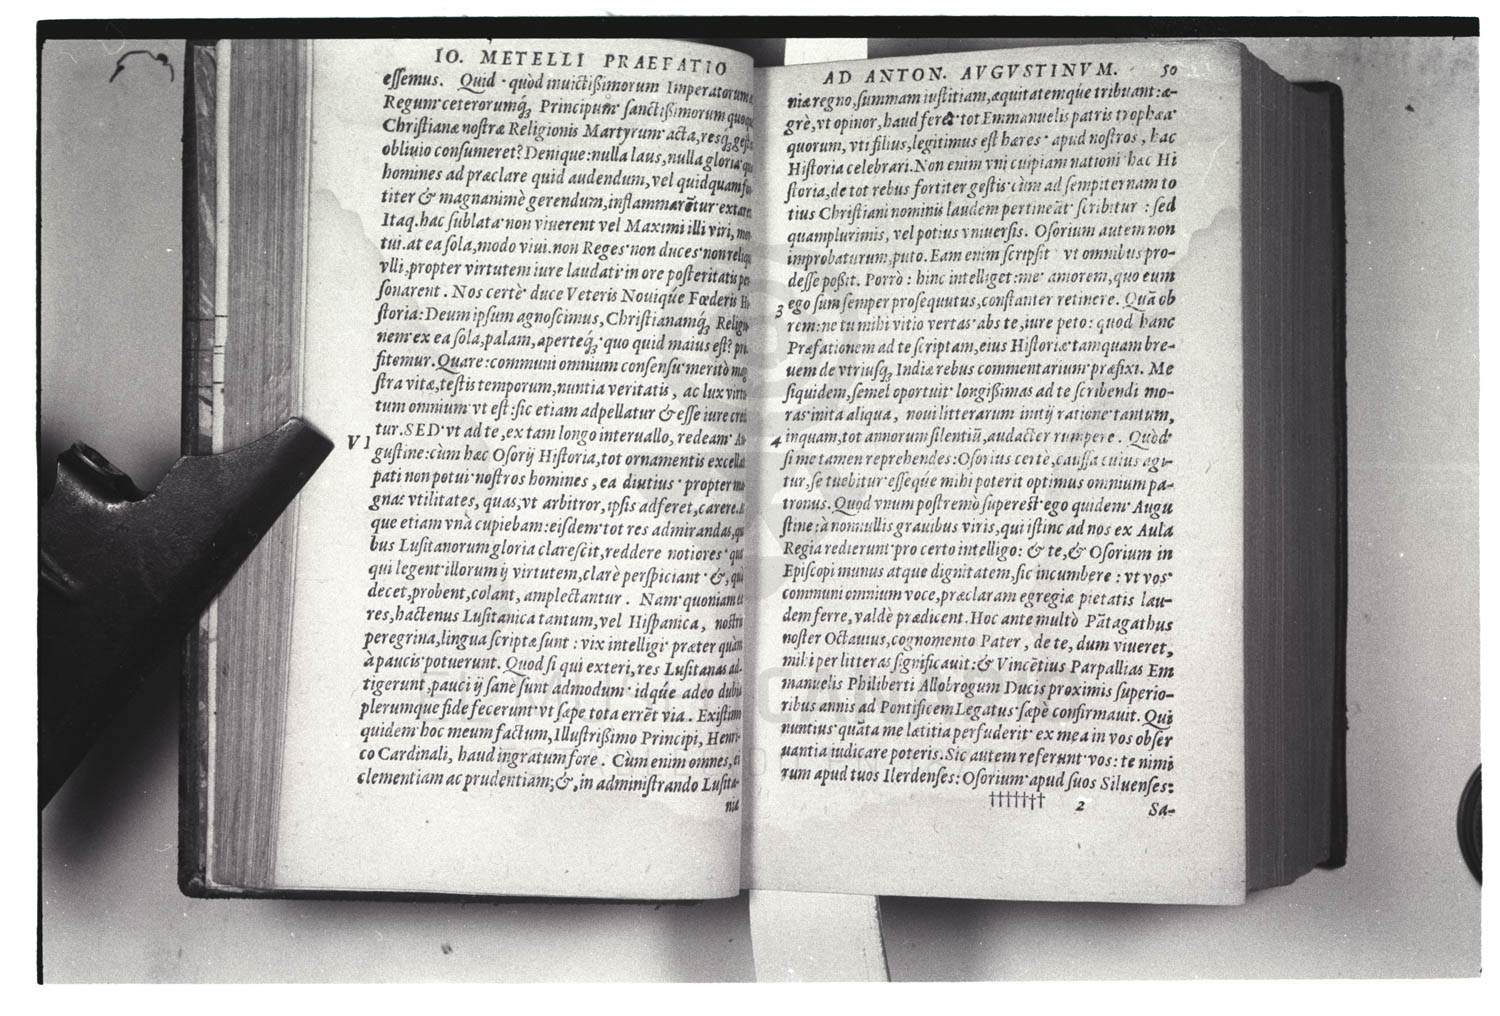 IO. METELLI PRAEFATIO
essemus. Quid quòd inuictißimorum Imperatorum,
Regum ceterorumq́; Principum sanctißimorum quoque
Christianæ nostræ Religionis Martyrum acta, resq́; gesta
obliuio consumeret? Denique: nulla laus, nulla gloria
homines ad præclare quid audendum, vel quidquam
titer & magnanimè gerendum, inflammarẽtur
Itaq. hac sublata non viuerent vel Maximi illi viri,
tui. at ea sola, modo viui. non Reges non duces non reliqui
vlli, propter virtutem iure laudati in ore posteritatis
sonarent. Nos certè duce Veteris Nouiqúe Fœderis
storia: Deum ipsum agnoscimus, Christianamq́; Religio
nem ex ea sola, palam, aperteq́; quo quid maius est?
fitemur. Quare: communi omnium consensu meritò
stra vitæ, testis temporum, nuntia veritatis, ac lux
tum omnium vt est: sic etiam adpellatur & esse iure
tur. SED vt ad te, ex tam longo interuallo, redeam
VI gustine: cùm hæc Osorij Historia, tot ornamentis
pati non potui nostros homines, ea diutius propter
gnas vtilitates, quas, vt arbitror, ipsis adferet, carere.
que etiam vnà cupiebam: eisdem tot res admirandas,
bus Lusitanorum gloria clarescit, reddere notiores
qui legent illorum ij virtutem, clarè perspiciant &,
decet, probent, colant, amplectantur. Nam quoniam
res, hactenus Lusitanica tantum, vel Hispanica, nostris
peregrina, lingua scriptæ sunt: vix intelligi præter quàm
à paucis potuerunt. Quod si qui exteri, res Lusitanas
tigerunt, pauci ij sanè sunt admodum idqúe adeo
plerumque fide fecerunt vt sæpe tota errẽt via. Existimo
quidem hoc meum factum, Illustrißimo Principi, Henri-
co Cardinali, haud ingratum fore. Cùm enim omnes,
clementiam ac prudentiam; &, in administrando Lusita-
niæ
AD ANTON. AVGVSTINVM. 50
niæ regno, summam iustitiam, æquitatemqúe tribuant: æ-
grè, vt opinor, haud feret tot Emmanuelis patris trophæa
quorum, vti filius, legitimus est hæres apud nostros, hac
Historia celebrari. Non enim vni cuipiam nationi hæc Hi
storia, de tot rebus fortiter gestis cùm ad sempiternam to
tius Christiani nominis laudem pertineāt scribitur: sed
quamplurimis, vel potius vniuersis. Osorium autem non
improbaturum, puto. Eam enim scripsit vt omnibus pro-
desse poßit. Porrò: hinc intelliget: me amorem, quo eum
3 ego sum semper prosequutus, constanter retinere. Quā ob
rem: ne tu mihi vitio vertas abs te, iure peto: quod hanc
Præfationem ad te scriptam, eius Historiæ tamquam bre-
uem de vtriusq́; Indiæ rebus commentarium præfixi. Me
siquidem, semel oportuit longißimas ad te scribendi mo-
ras inita aliqua, noui litterarum initij ratione tantum,
4 inquam, tot annorum silentiū, audacter rumpere. Quòd
si me tamen reprehendes: Osorius certè, caussa cuius agi-
tur, se tuebitur esseqúe mihi poterit optimus omnium pa-
tronus. Quod vnum postremò superest ego quidem Augu
stine: à nonnullis grauibus viris, qui istinc ad nos ex Aula
Regia redierunt pro certo intelligo: & te, & Osorium in
Episcopi munus atque dignitatem, sic incumbere: vt vos
communi omnium voce, præclaram egregiæ pietatis lau-
dem ferre, valdè prædicent. Hoc ante multò Pātagathus
noster Octauius, cognomento Pater, de te, dum viueret,
mihi per litteras significauit: & Vincētius Parpallias Em
manuelis Philiberti Allobrogum Ducis proximis superio-
ribus annis ad Pontificem Legatus sæpè confirmauit. Qui
nuntius quāta me lætitia perfuderit ex mea in vos obser
uantia iudicare poteris. Sic autem referunt vos: te nimi
rum apud tuos Ilerdenses: Osorium apud suos Siluenses:
††††††† 2 Sa-